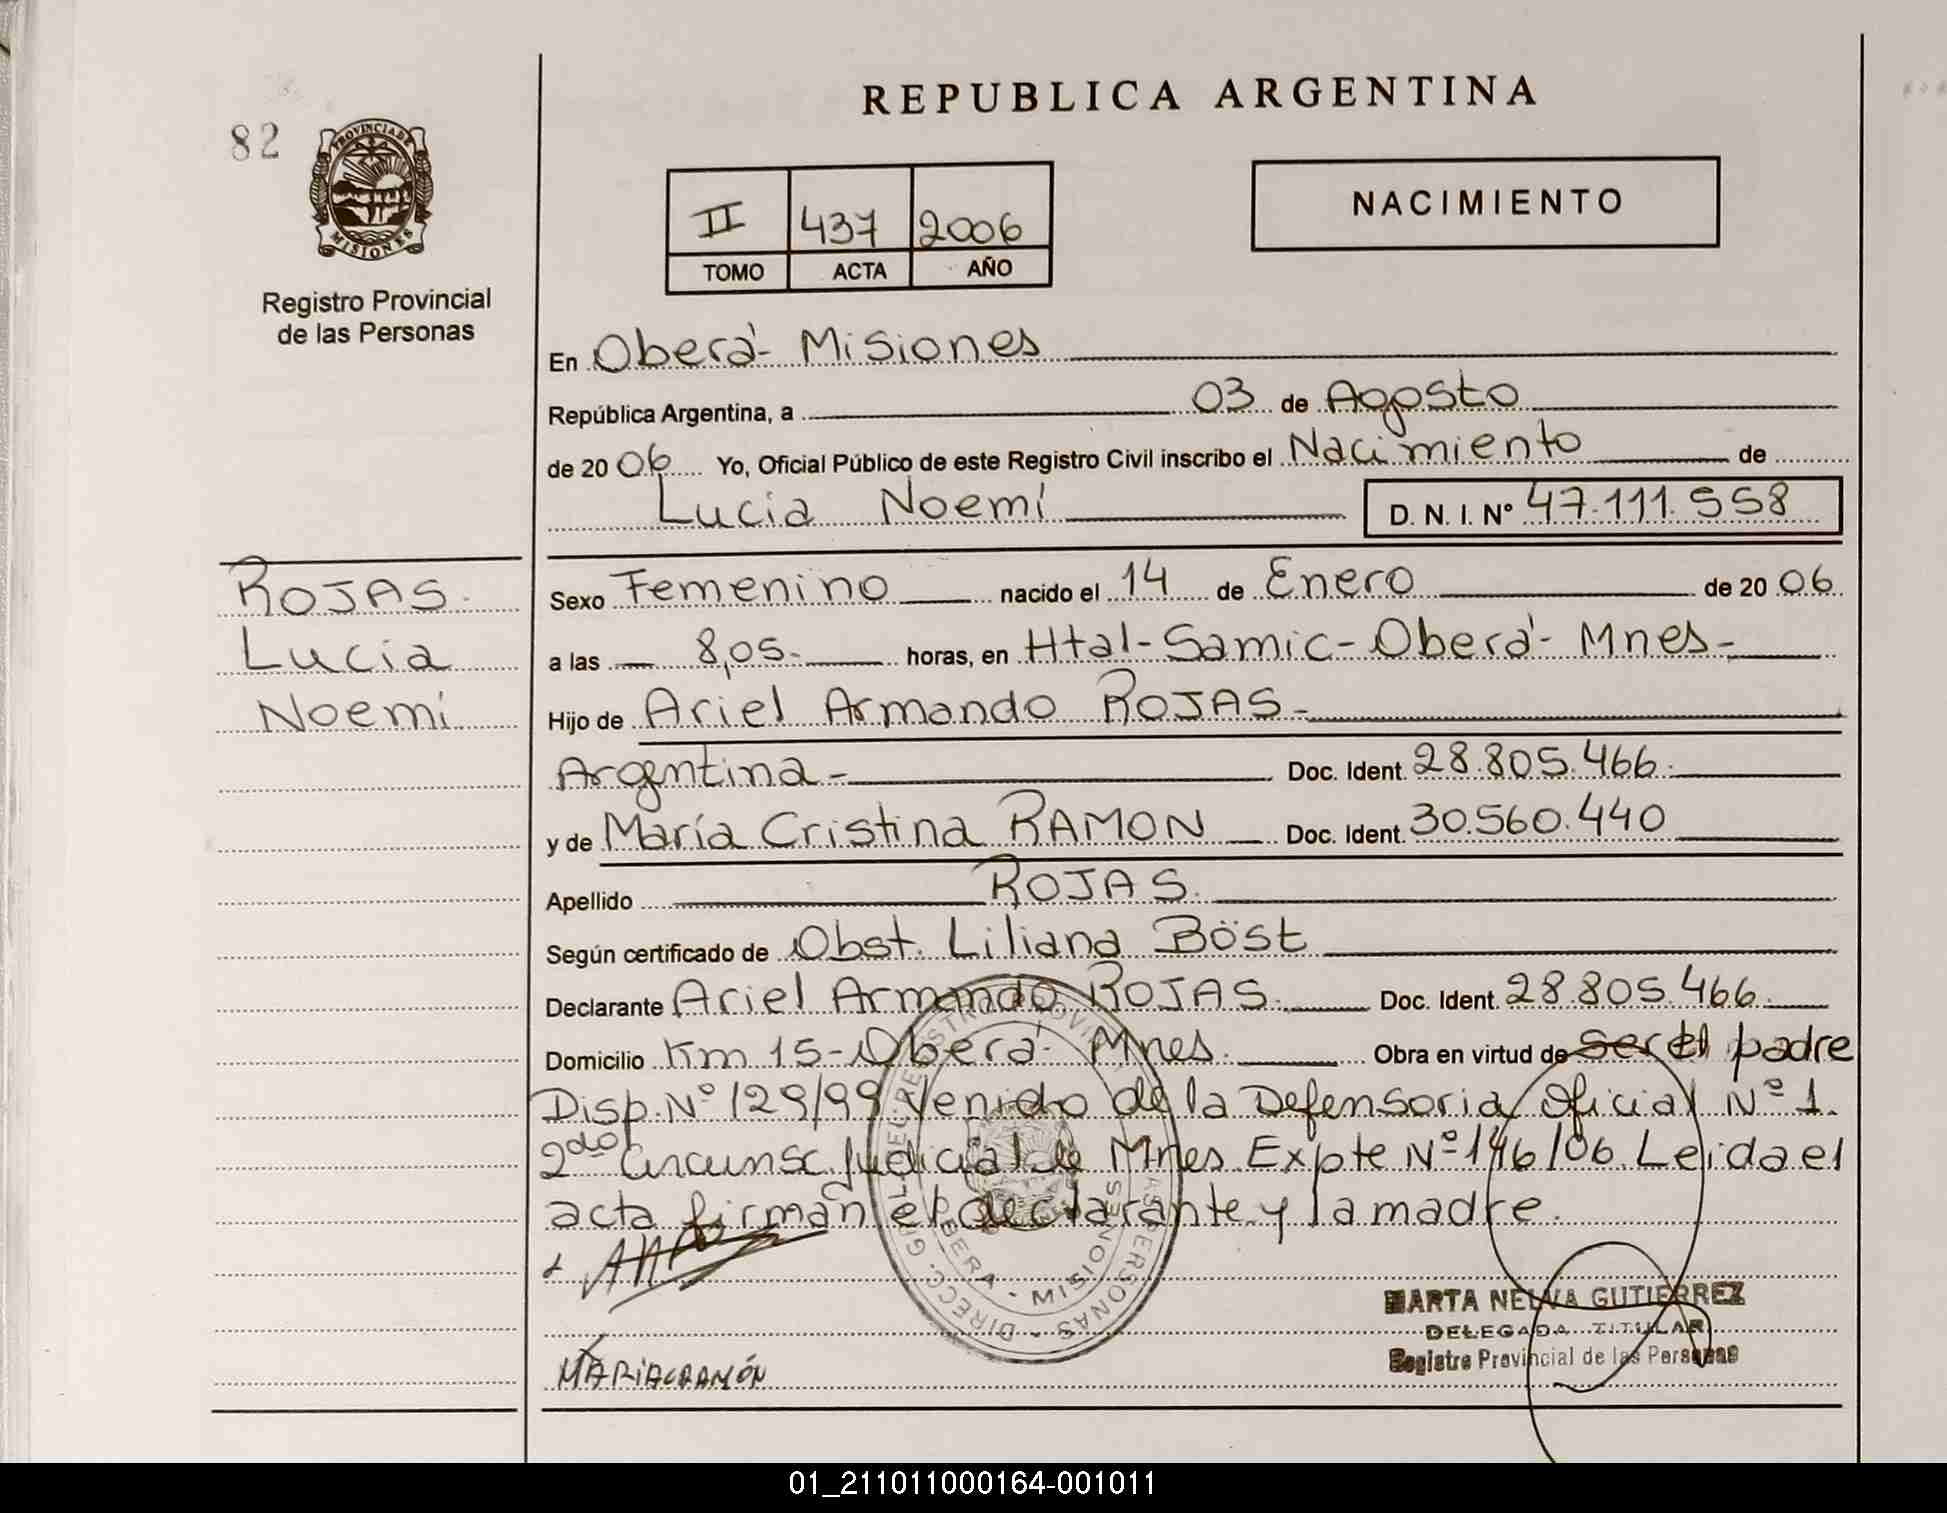 REPUBLICA ARGENTINA
82
PROVINCIA DE
MISIONES
Registro Provincial
de las Personas
II 437 2006
TOMO ACTA AÑO
NACIMIENTO
En Oberá - Misiones
República Argentina, a 03 de Agosto
de 2006 Yo, Oficial Público de este Registro Civil inscribo el Nacimiento de
Lucia Noemí D. N. I. Nº 47.111.558
ROJAS.
Lucia
Noemí
Sexo Femenino nacido el 14 de Enero de 2006
a las 8,05.- horas, en Htal-Samic-Oberá-Mnes-
Hijo de Ariel Armando ROJAS.-
Argentina.- Doc. Ident. 28.805.466.
y de María Cristina RAMON Doc. Ident. 30.560.440
Apellido ROJAS.
Según certificado de Obst. Liliana Böst
Declarante Ariel Armando ROJAS. Doc. Ident. 28.805.466.
Domicilio Km 15-Oberá- Mnes. Obra en virtud de ser el padre
Disp. Nº 129/99 Venido de la Defensoria Oficial Nº 1.
2do Circunsc. Judicial de Mnes Expte Nº 146/06. Leida el
acta firman el declarante y la madre.
OBERA - MISIONES
MARTA NELVA GUTIERREZ
DELEGADA TITULAR
Registro Provincial de las Personas
01_211011000164-001011